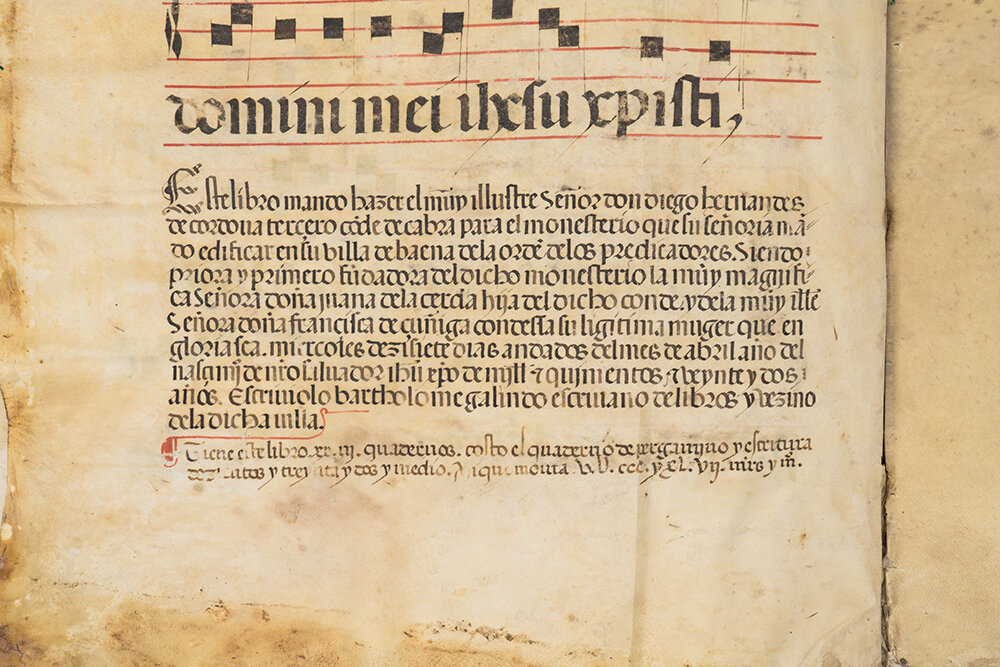 domini mei ihesu xpisti,
Este libro mando hazer el muy illustre Señor don diego hernandes
de cordoua tercero cōde de cabra para el monesterio que su señoria mā-
do edificar en su villa de baena dela ordē delos predicadores. Siendo
priora y primero fūdadora del dicho monesterio la muy magnifi-
ca Señora doña juana dela cerda hija del dicho conde. y dela muy illē
Señora doña francisca de çuñiga condessa su ligitima muger que en
gloria sea. miercoles dezisiete dias andados del mes de abril año del
nascimiº de nr̄o saluador ihū xp̄o de mill ⁊ quinientos. ⁊ veynte y dos
años. Escriuiolo bartholome galindo escriuano de libros y vezino
dela dicha uilla.
¶ Tiene este libro xx.iii. quadernos. costo el quaderno de pergamino y escritura
y treynta y dos y medio. monta v.D. ccc. y xL. vii. mr̄s y m̄.